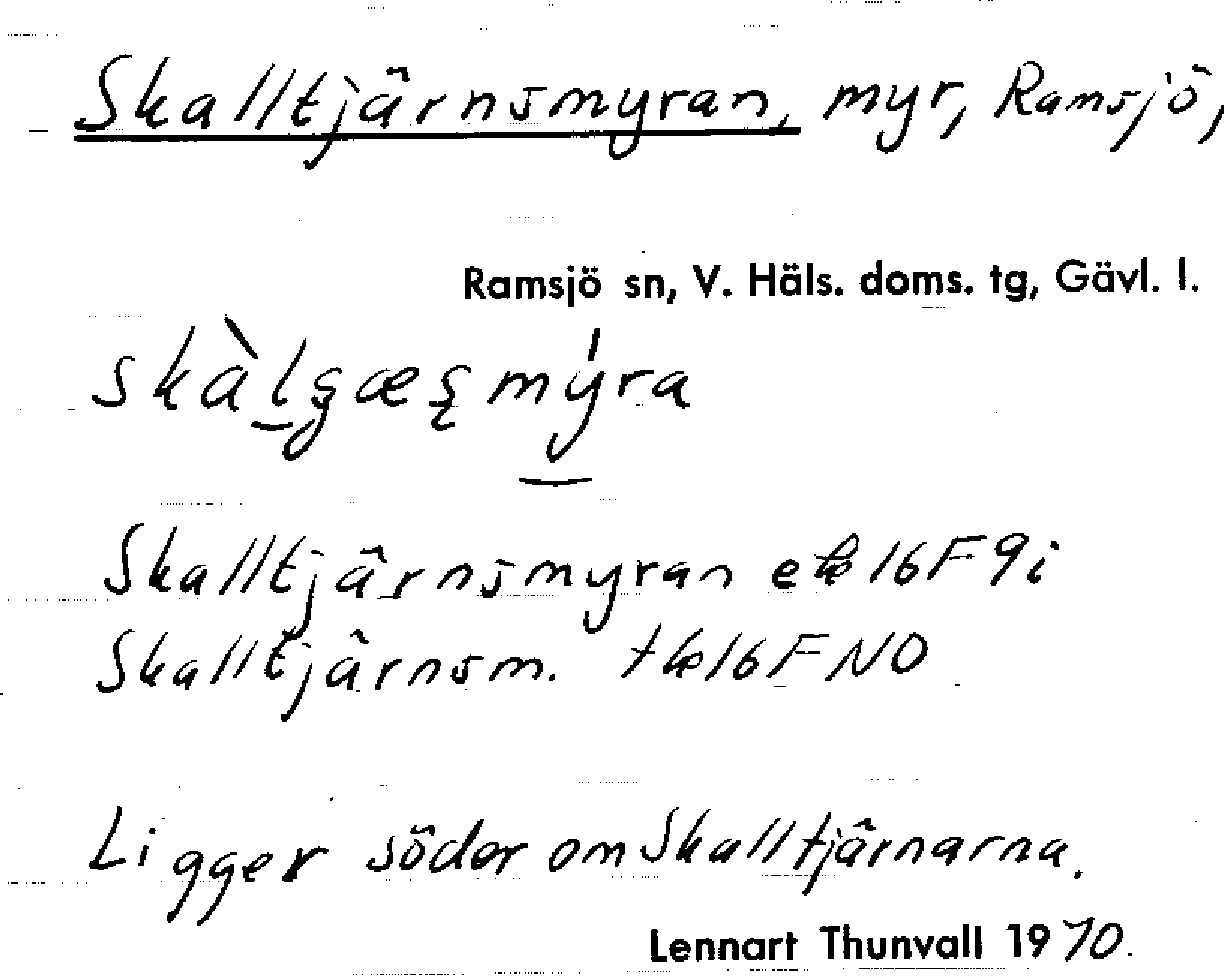 Skalltjärnsmyran, myr, Ramsjö,
Ramsjö sn, V. Häls. doms. tg, Gävl. l.
Skalltjärnsmyran 16F 9i
Skalltjärnsm. 16F NO
Ligger söder om Skalltjärnarna.
Lennart Thunvall 1970.